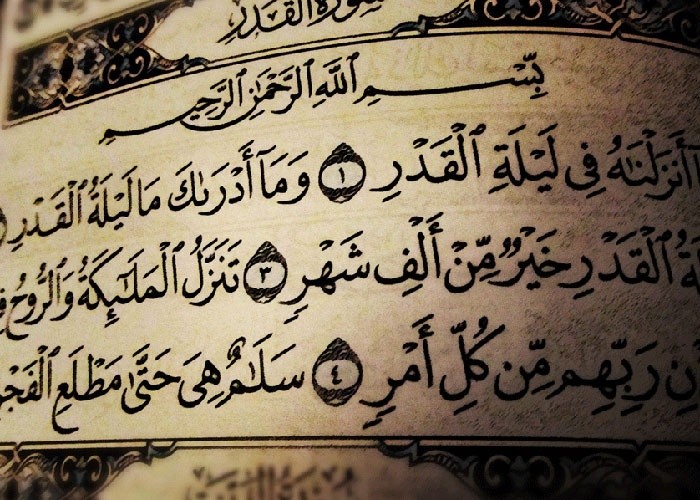 سُورَةُ ٱلْقَدْرِ
بِسْمِ ٱللَّهِ ٱلرَّحْمَٰنِ ٱلرَّحِيمِ
أَنزَلْنَٰهُ فِى لَيْلَةِ ٱلْقَدْرِ ١ وَمَآ أَدْرَىٰكَ مَا لَيْلَةُ ٱلْقَدْرِ
ٱلْقَدْرِ خَيْرٌ مِّنْ أَلْفِ شَهْرٍ ٣ تَنَزَّلُ ٱلْمَلَٰٓئِكَةُ وَٱلرُّوحُ
رَبِّهِم مِّن كُلِّ أَمْرٍ ٤ سَلَٰمٌ هِىَ حَتَّىٰ مَطْلَعِ ٱلْفَجْرِ